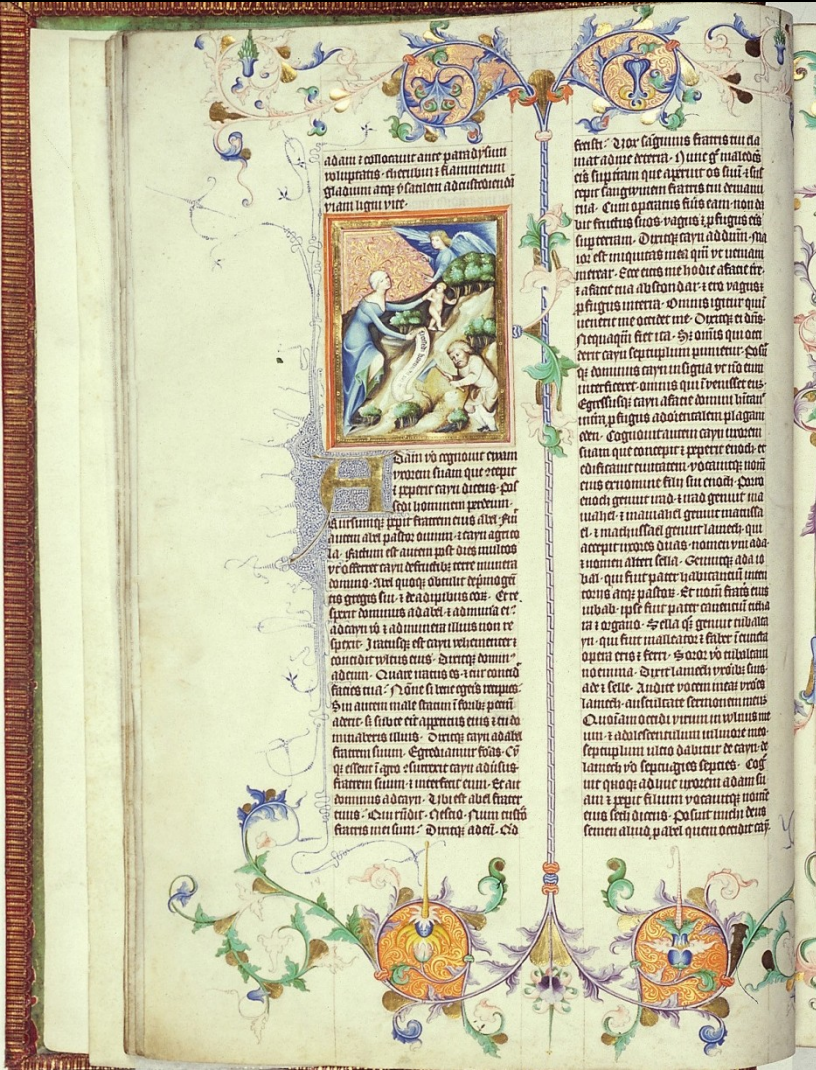 adam et collocauit ante paradysum
voluptatis cherubin et flammeum
gladium atqꝫ ỽsatilem ad custodiendā
viam ligni vite
Adam ỽo cognouit euam
vxorem suam que cōcepit
et peperit cayn dicens Pos
sedi hominem per deum
Rursumqꝫ peperit fratrem eius abel Fuit
autem abel pastor ouium et cayn agrico
la Factum est autem post dies multos
vt offerret cayn de fructibꝫ terre munera
domino Abel quoqꝫ obtulit de p̄mogeni
tis gregis sui et de adipibus eoꝝ Et re
spexit dominus ad abel et ad munera eiꝰ
ad cayn ỽo et ad munera illius non re
spexit Iratusqꝫ est cayn vehementer et
concidit wltus eius Dixitqꝫ dominꝰ
ad eum Quare iratus es et cur concid
facies tua Nōne si bene egeris recipies
Sin autem male statim ī foribꝫ peccm̄
aderit si subter erit appetitus eius et tu do
minaberis illius Dixitqꝫ cayn ad abel
fratrem suum Egrediamur foras Cū
qꝫ essent ī agro ꝯsurrexit cayn aduersus
fratrem suum et interfecit eum Et ait
dominus ad cayn Vbi est abel frater
tuus Qui rn̄dit Nescio Num custos
fratris mei sum Dixitqꝫ ad eū Qd
fecisti Vox sāguinis fratris tui cla
mat ad me de terra Nunc gͦ maledcūs
eris super terram que aperuit os suū et sus
cepit sangwinem fratris tui de manu
tua Cum operatus fūis eam non da
bit fructus suos vagus et ꝓfugus eris
super terram Dixitqꝫ cayn ad dūm Ma
ior est iniquitas mea qm̄ vt veniam
merear Ecce eicis me hodie a facie terre
et a facie tua abscondar et ero vagus et
ꝓfugus in terra Omnis igitur qui ī
uenerit me occidet me Dixitqꝫ ei dn̄s
Nequaqm̄ fiet ita Sꝫ om̄is qui occi
derit cayn septuplum punietur Posuit
qꝫ dominus cayn in signum vt nō eum
interficeret omnis qui īuenisset eum
Egressusqꝫ cayn a facie domini habitauit
in terra ꝓfugus ad orientalem plagam
eden Cognouit autem cayn vxorem
suam que concepit et peperit enoch et
edificauit ciuitatem vocauitqꝫ nomē
eius ex nomine filij sui enoch Porro
enoch genuit irad et irad genuit ma
uiahel et mauiahel genuit matussa
el et mathussael genuit lamech qui
accepit vxores duas nomen vni ada
et nomen alteri sella Genuitqꝫ ada ia
bal qui fuit pater habitancium in ten
toriis atqꝫ pastoꝝ Et nomē fratris eius
iubal ipse fuit pater canencium citha
ra et organo Sella qꝫ genuit tubalca
yn qui fuit malleator et faber ī cuncta
opera eris et ferri Soror ỽo tubalcain
noemma Dixit lamech vxoribꝫ suis
ade et selle Audite vocem meam vxores
lamech auscultate sermonem meum
Quoniam occidi virum in wlnus me
um et adolescentulum in liuore meo
septuplum ulcio dabitur de cayn de
lamech ỽo septuagies septies Cog
uit quoqꝫ adhuc vxorem adam su
am et peperit filium vocauitqꝫ nomē
eius seth dicens Posuit michi deus
semen aliud ꝓ abel quem occidit cayn